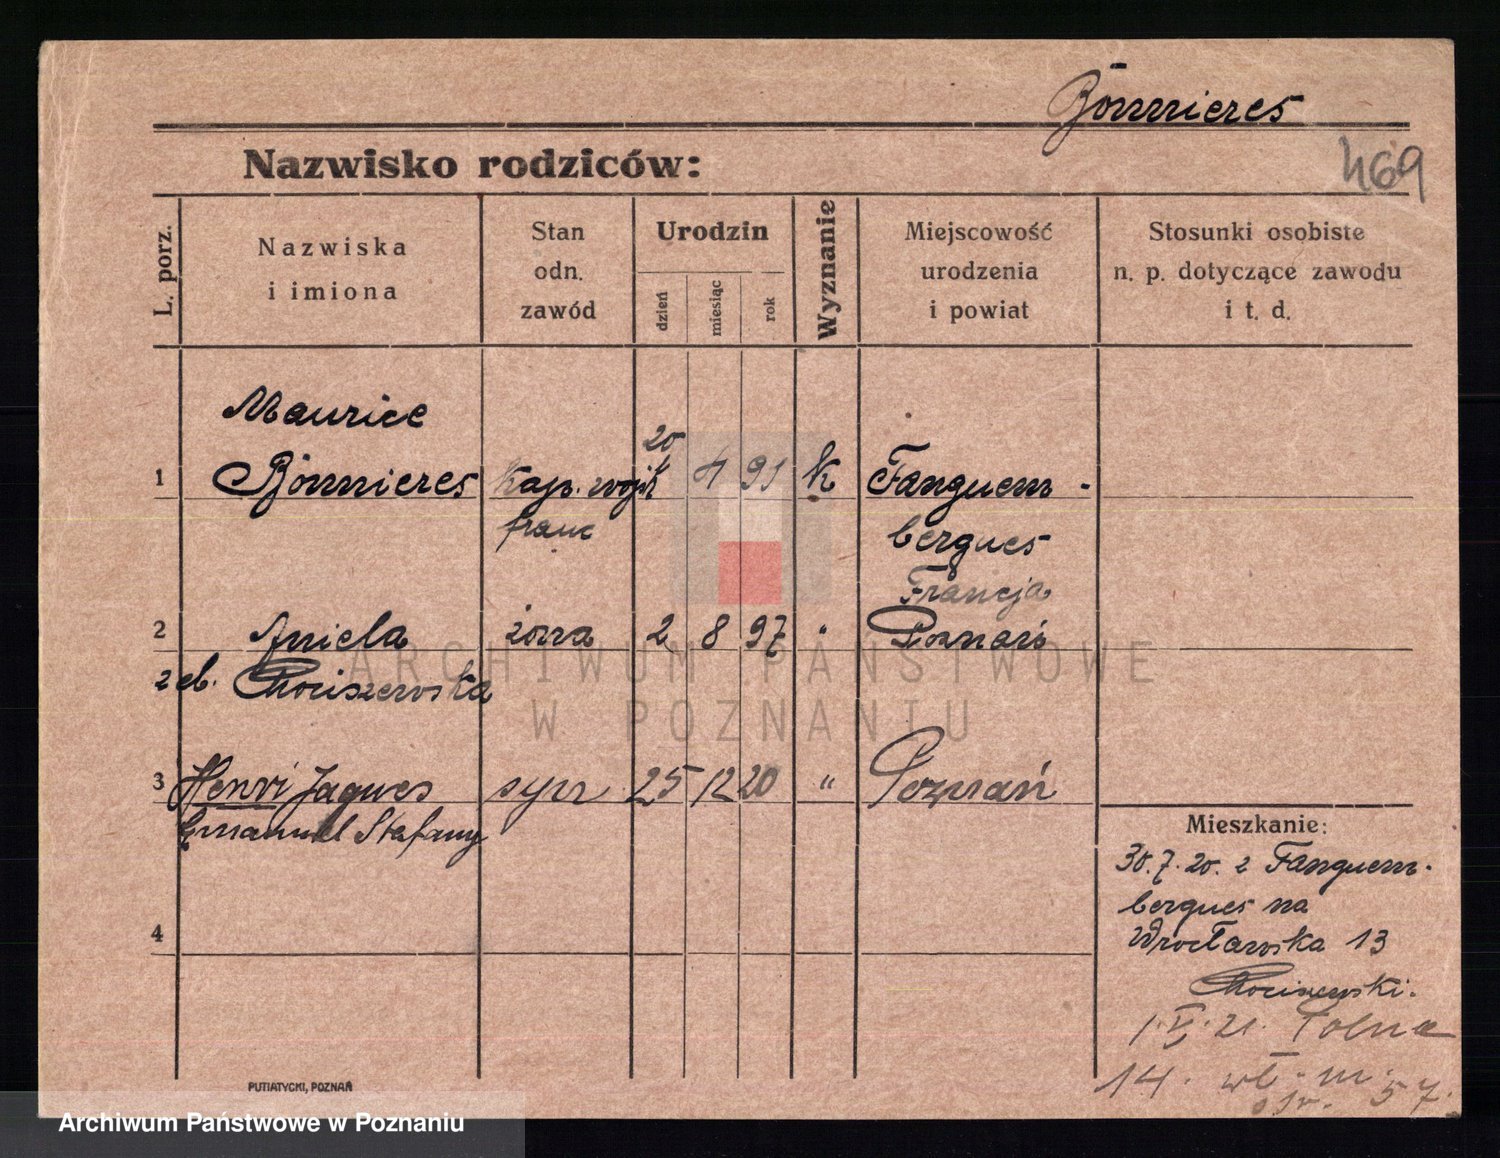 Bonnieres
Nazwisko rodziców:
469
L. porz.
Nazwiska
i imiona
Stan
odn.
zawód
Urodzin
dzień
miesiąc
rok
Wyznanie
Miejscowość
urodzenia
i powiat
Stosunki osobiste
n. p. dotyczące zawodu
i t. d.
Maurice
20
1 Bonnieres kap. wojsk 4 91 k Fanguem-
franc bergues
Francja
2 Aniela żona 2 8 97 " Poznań
z d. Chociszewska
3 Henri Jaques syn 25 12 20 " Poznań
Emanuel Stefany
4
Mieszkanie:
30.7.20. z Fanguem-
bergues na
Wrocławska 13
Chociszewski.
1.V.21. Polna
14. wł. m.
57.
PUTIATYCKI, POZNAŃ
ARCHIWUM PAŃSTWOWE
W POZNANIU
Archiwum Państwowe w Poznaniu